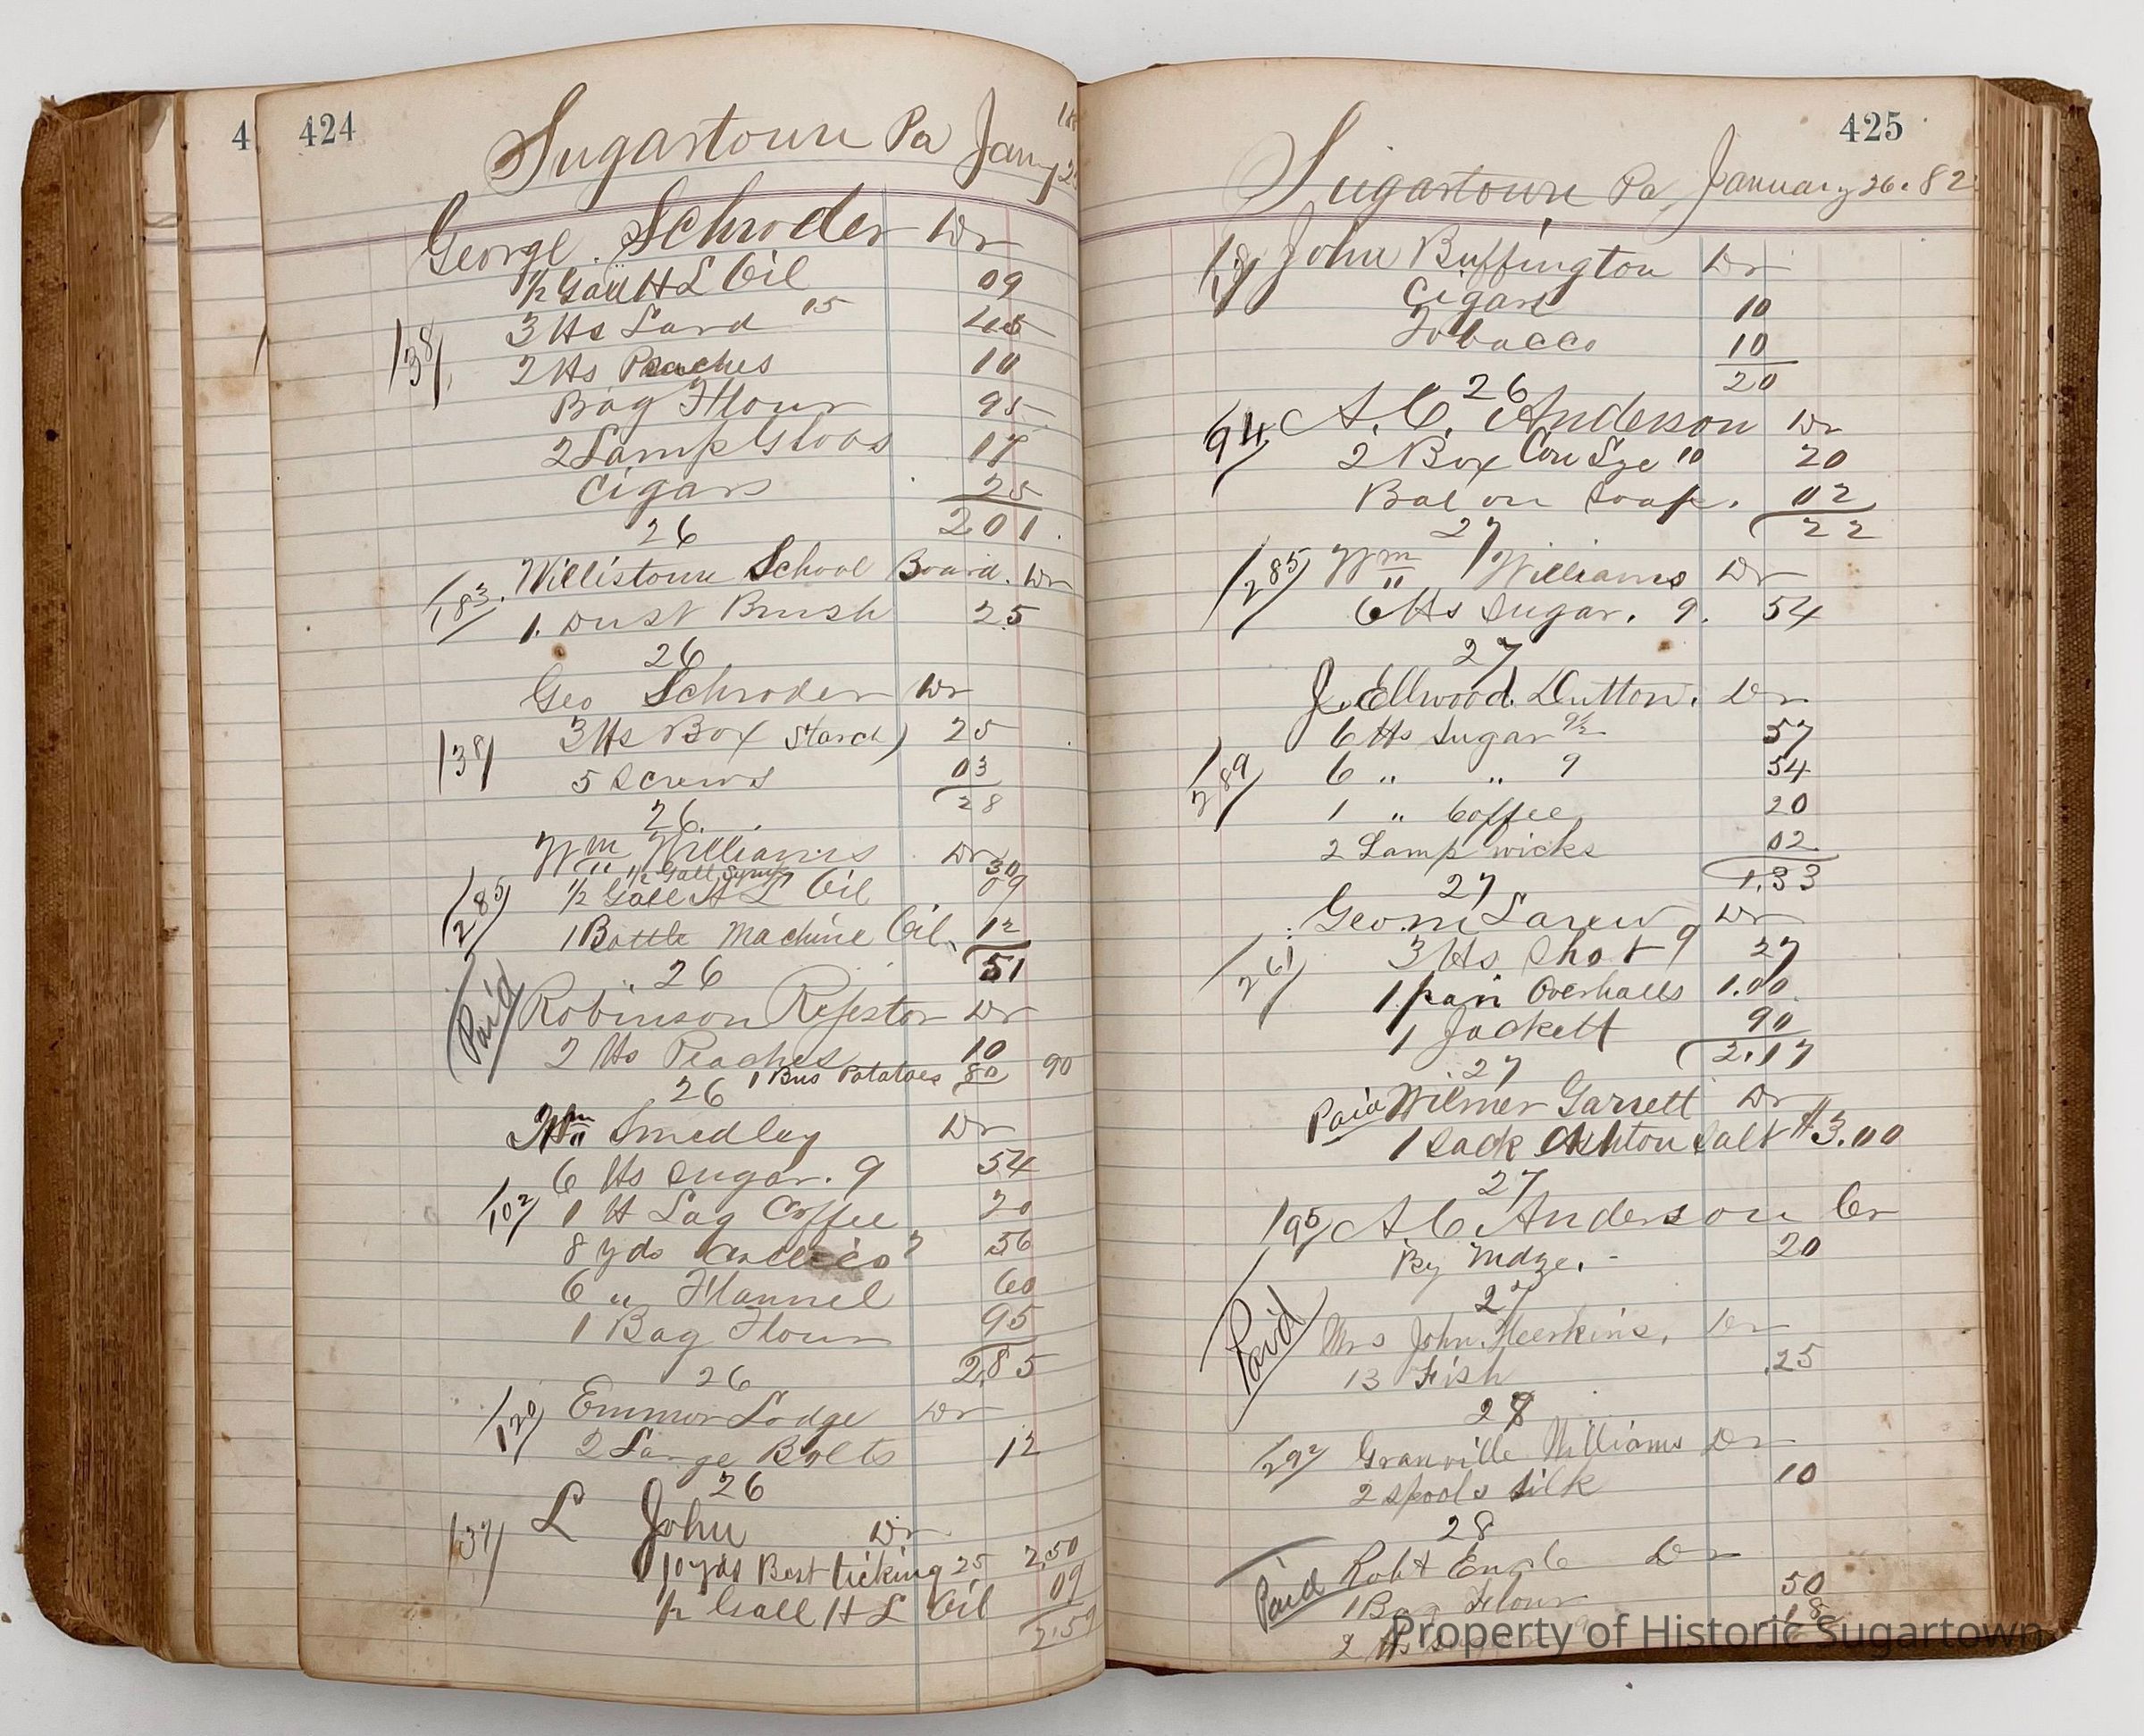 4
424
Sugartown Pa Jany 2
George Schroder Dr
1/2 Gall H L Oil 09
138/ 3 lbs Lard 15 45
2 lbs Peaches 10
Bag Flour 95
2 Lamp Globs 17
Cigars 25
201
26
Willistown School Board. Dr
183. 1. Dust Brush 25
26
Geo Schroder Dr
138/ 3 lbs Box Starch) 25
5 Screws 03
28
26
Wm Williams Dr
1/2 Gall Syrup 30
285/ 1/2 Gall H L Oil 09
1 Bottle Machine Oil 12
51
26
Paid Robinson Dr
2 lbs Peaches 10
1 Bus Potatoes 80 90
26
Wm Smedley Dr
6 lbs Sugar. 9 54
102/ 1 lb Lag Coffee 20
8 yds Callico 7 56
6 " Flannel 60
1 Bag Flour 95
2.85
26
120/ Emmor Lodge Dr
2 Large Bolts 12
26
137/ L John Dr
10 yds Best ticking 25 2.50
1/2 Gall H L Oil 09
2.59
425
Sugartown Pa January 26. 82
John Buffington Dr
Cigars 10
Tobacco 10
20
26
94/ A. C. Anderson Dr
2 Box Con Lye 10 20
Bal on Soap. 02
22
27
285/ Wm Williams Dr
6 lbs Sugar. 9. 54
27
J. Ellwood Dutton. Dr
6 lbs Sugar 9 1/2 57
289/ 6 " " 9 54
1 " Coffee 20
2 Lamp wicks 02
1.33
27
Geo. m Larew Dr
261/ 3 lbs Shot 9 27
1 pair Overhalls 1.00
1 Jackett 90
2.17
27
Paid Wilmer Garrett Dr
1 Sack Ashton Salt $3.00
27
195/ A C Anderson Cr
By Mdze. 20
27
Paid Mrs John Dr
13 Fish .25
28
292/ Granville Williams Dr
2 spools silk 10
28
Paid Robt Dr
1 Bag Flour 50
2 lbs 18
Property of Historic Sugartown